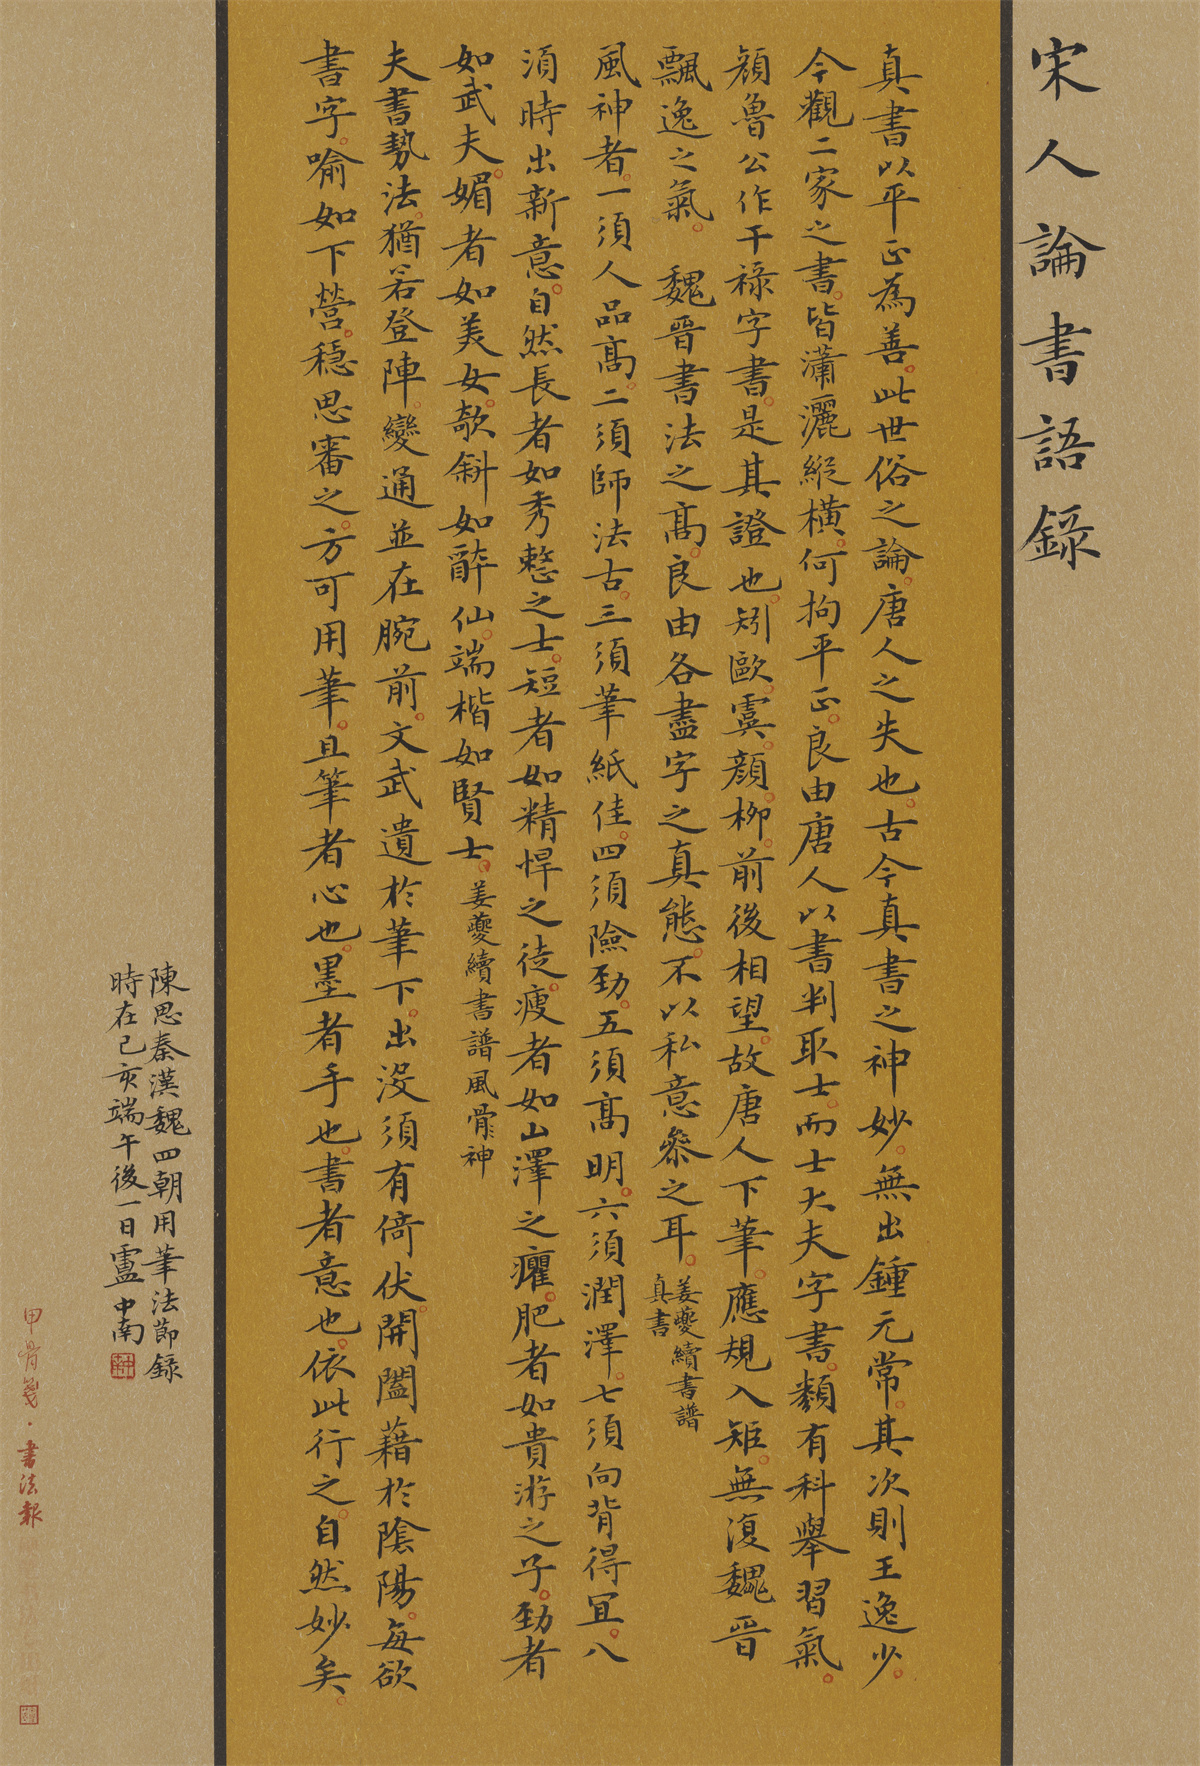 宋人論書語錄
真書以平正為善。此世俗之論。唐人之失也。古今真書之神妙。無出鍾元常。其次則王逸少。
今觀二家之書。皆瀟灑縱橫。何拘平正。良由唐人以書判取士。而士大夫字書。類有科舉習氣。
顏魯公作干祿字書。是其證也。矧歐。虞。顏。柳。前後相望。故唐人下筆。應規入矩。無復魏晉
飄逸之氣。 魏晉書法之高。良由各盡字之真態。不以私意參之耳。姜夔續書譜真書
風神者。一須人品高。二須師法古。三須筆紙佳。四須險勁。五須高明。六須潤澤。七須向背得宜。八
須時出新意。自然長者如秀整之士。短者如精悍之徒。瘦者如山澤之癯。肥者如貴游之子。勁者
如武夫。媚者如美女。欹斜如醉仙。端楷如賢士。姜夔續書譜風骨神
夫書勢法。猶若登陣。變通並在腕前。文武遺於筆下。出沒須有倚伏。開闔藉於陰陽。每欲
書字。喻如下營。穩思審之。方可用筆。且筆者心也。墨者手也。書者意也。依此行之。自然妙矣。
陳思秦漢魏四朝用筆法節錄
時在己亥端午後一日盧中南
甲骨箋·書法報